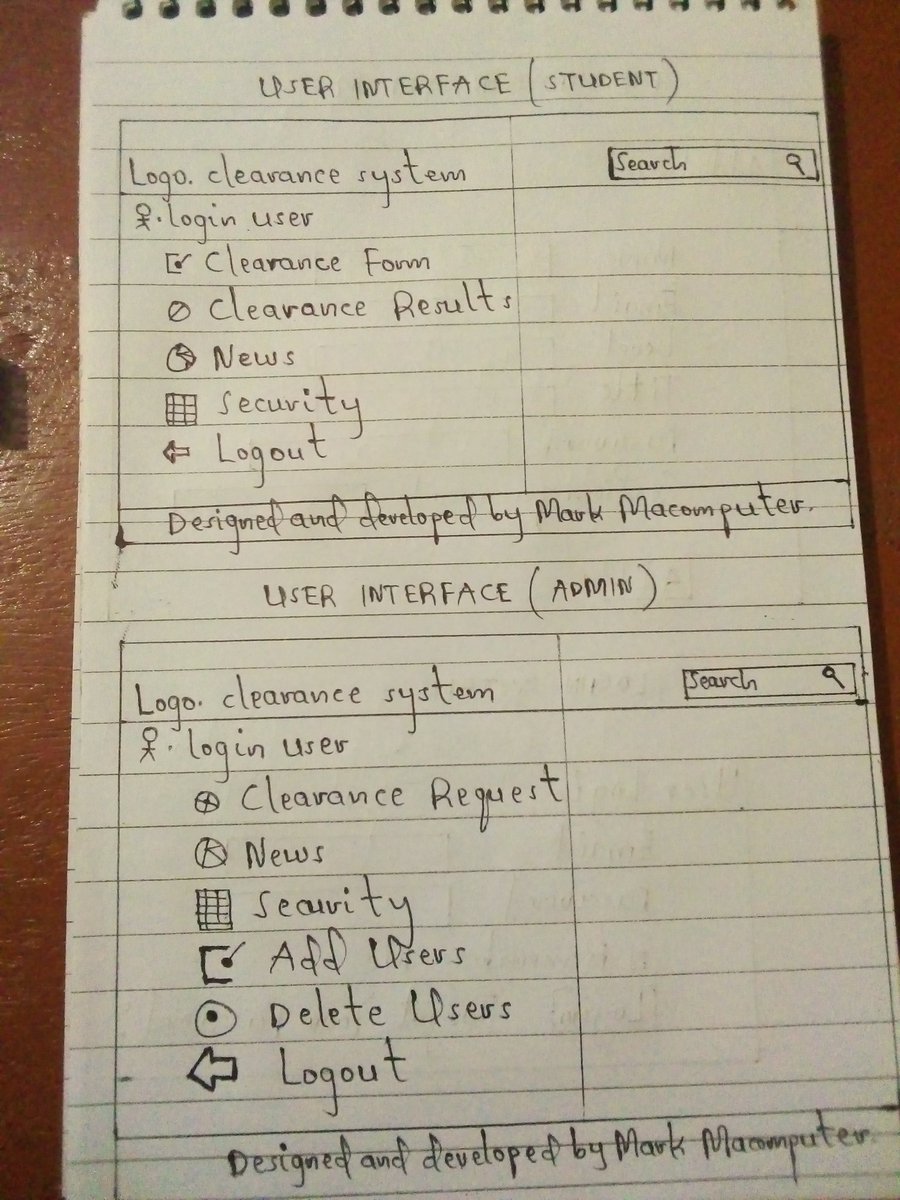 USER INTERFACE (STUDENT)
Logo. clearance system
Search
login user
Clearance Form
Clearance Results
News
Security
Logout
Designed and developed by Mark Macomputer.
USER INTERFACE (ADMIN)
Logo. clearance system
Search
login user
Clearance Request
News
Security
Add Users
Delete Users
Logout
Designed and developed by Mark Macomputer.